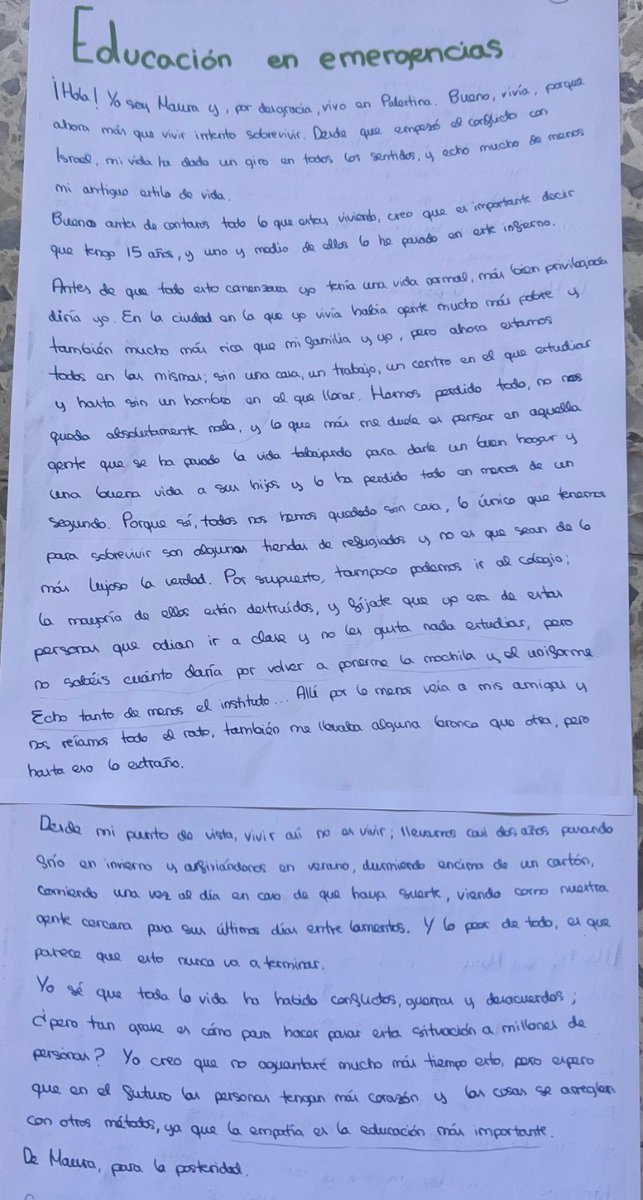 Educación en emergencias
¡Hola! Yo soy Maura y, por desgracia, vivo en Palestina. Bueno, vivía, porque
ahora más que vivir intento sobrevivir. Desde que empezó el conflicto con
Israel, mi vida ha dado un giro en todos los sentidos, y echo mucho de menos
mi antiguo estilo de vida.
Bueno antes de contaros todo lo que estoy viviendo, creo que es importante decir
que tengo 15 años, y uno y medio de ellos lo he pasado en este infierno.
Antes de que todo esto comenzara yo tenía una vida normal, más bien privilegiada
diría yo. En la ciudad en la que yo vivía había gente mucho más pobre y
también mucho más rica que mi familia y yo, pero ahora estamos
todos en las mismas; sin una casa, un trabajo, un centro en el que estudiar
y hasta sin un hombro en el que llorar. Hemos perdido todo, no nos
queda absolutamente nada, y lo que más me duele es pensar en aquella
gente que se ha pasado la vida trabajando para darle un buen hogar y
una buena vida a sus hijos y lo ha perdido todo en menos de un
segundo. Porque sí, todos nos hemos quedado sin casa, lo único que tenemos
para sobrevivir son algunas tiendas de refugiados y no es que sean de lo
más lujoso la verdad. Por supuesto, tampoco podemos ir al colegio;
la mayoría de ellos están destruídos, y fíjate que yo era de estas
personas que odian ir a clase y no les gusta nada estudiar, pero
no sabéis cuánto daría por volver a ponerme la mochila y el uniforme.
Echo tanto de menos el instituto... Allí por lo menos veía a mis amigas y
nos reíamos todo el rato, también me llevaba alguna bronca que otra, pero
hasta eso lo extraño.
Desde mi punto de vista, vivir así no es vivir; llevamos casi dos años pasando
frío en invierno y asfixiándonos en verano, durmiendo encima de un cartón,
comiendo una vez al día en caso de que haya suerte, viendo como nuestra
gente cercana pasa sus últimos días entre lamentos. Y lo peor de todo, es que
parece que esto nunca va a terminar.
Yo sé que toda la vida ha habido conflictos, guerras y desacuerdos;
¿pero tan grave es cómo para hacer pasar esta situación a millones de
personas? Yo creo que no aguantaré mucho más tiempo esto, pero espero
que en el futuro las personas tengan más corazón y las cosas se arreglen
con otros métodos, ya que la empatía es la educación más importante.
De Maura, para la posteridad.